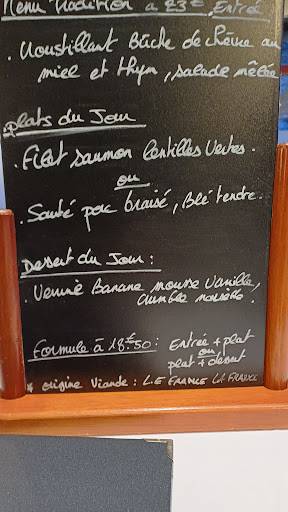 Menu Tradition à 23€ Entrée
. Croustillant Bûche de chèvre au
miel et thym, salade mêlée
plats du Jour
. Filet saumon lentilles vertes.
ou
. Sauté porc braisé, Blé tendre.
Dessert du Jour :
. Verrine Banane mousse vanille,
crumble noisette.
Formule à 18€50 : Entrée + plat
ou
plat + dessert
* origine Viande : L.E FRANCE LA FRANCE